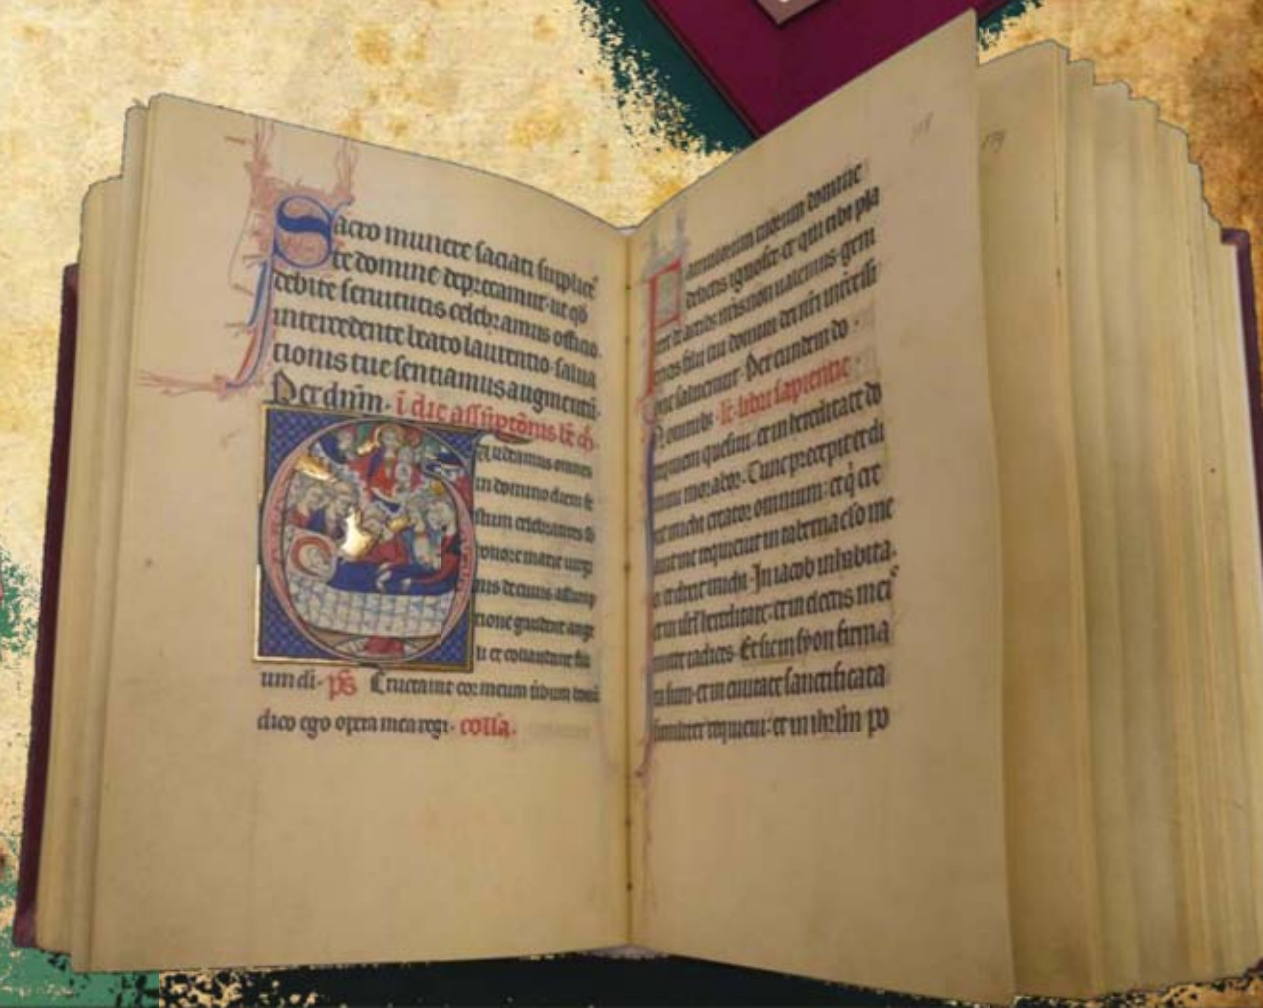 Sacro munere saciati supplices
te domine deprecamur ut qd
debite seruitutis celebramus officio
intercedente beato laurentio salua
tionis tue sentiamus augmentū.
Per dnm. ī die assūptōnis bē
Gaudeamus omnes
in domino diem fe
stum celebrantes
honore marie uirgi
nis de cuius assump
tione gaudent ange
li et conlaudant fili
um di. ps Eructauit cor meum uerbum
dico ego opera mea regi. colla.
118
119
Famulorum tuorum domine
delictis ignosce et qui tibi pla
cere de actib; nris non ualemus gem
filii tui domini dei nri
saluemur. Per eundem do
lc libri sapientie
omnib; requiem quesiui et in hereditate do
mini morabor. Tunc precepit et di
michi creator omnium et q̇
me requieuit in tabernaclo me
et dixit michi. In iacob inhabita.
et in isrl hereditare et in electis mei
mitte radices. Et sic in syon firma
ta sum et in ciuitate sanctificata
similiter requieui et in ihrlm po